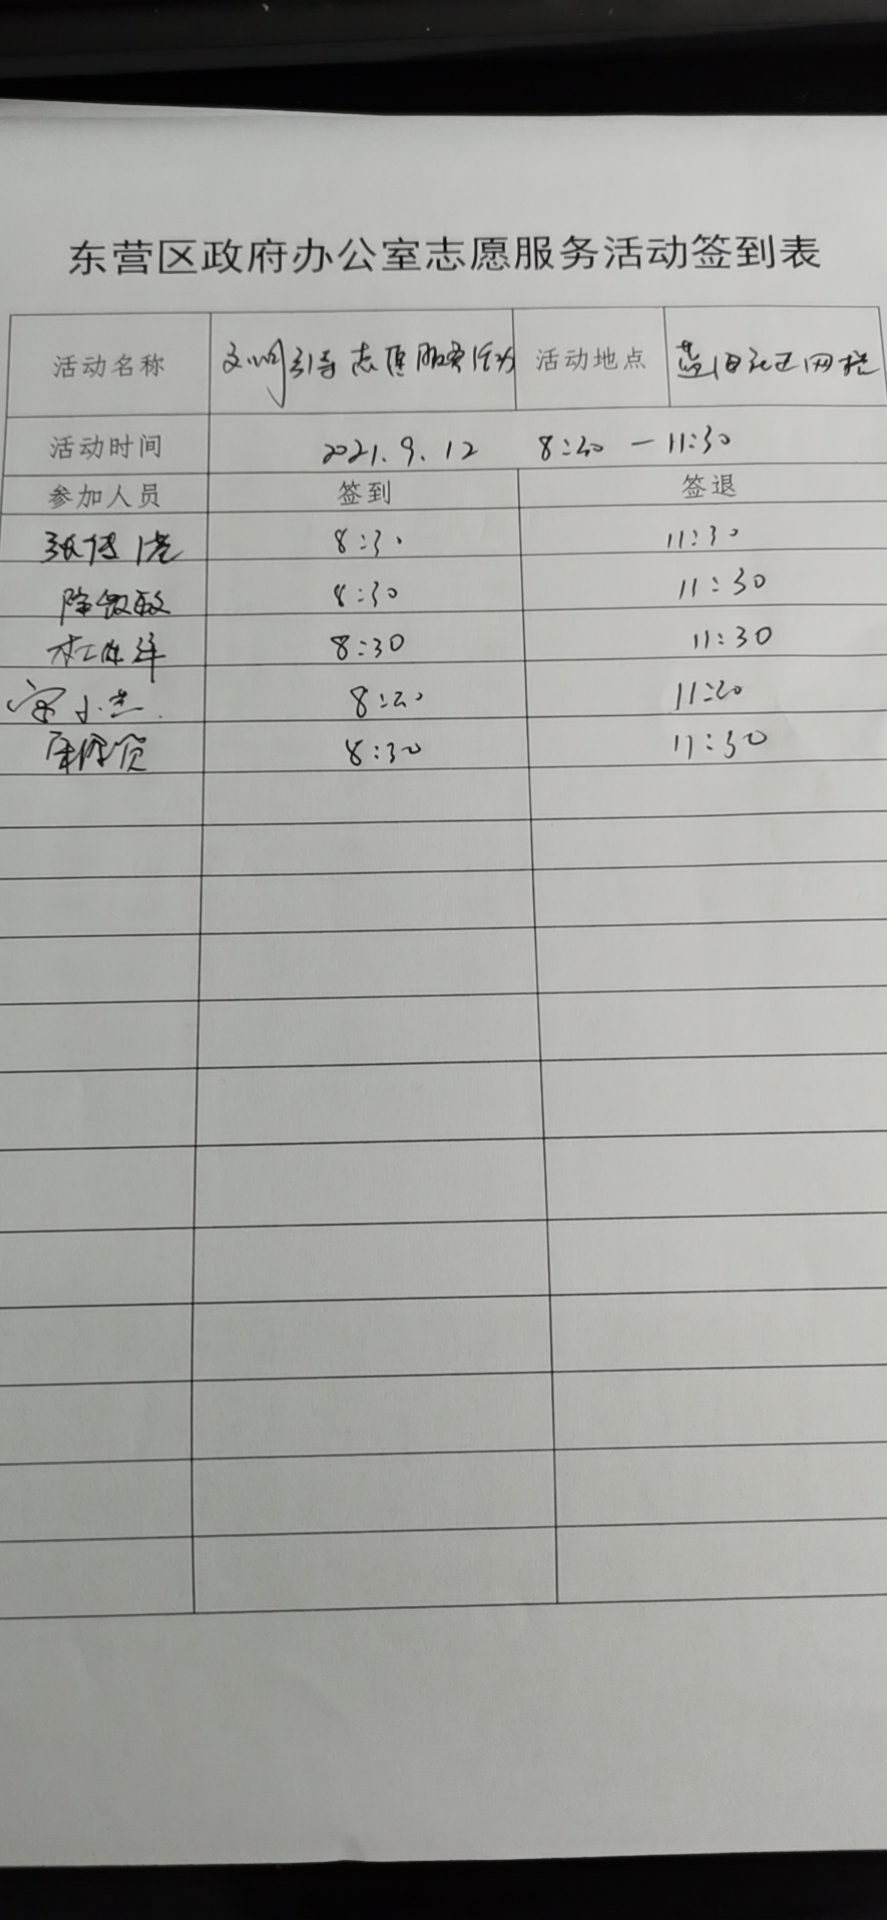 东营区政府办公室志愿服务活动签到表
活动名称 文明引导志愿服务活动 活动地点
活动时间 2021.9.12 8:30 — 11:30
参加人员 签到 签退
8:30 11:30
8:30 11:30
8:30 11:30
小杰 8:30 11:30
8:30 11:30